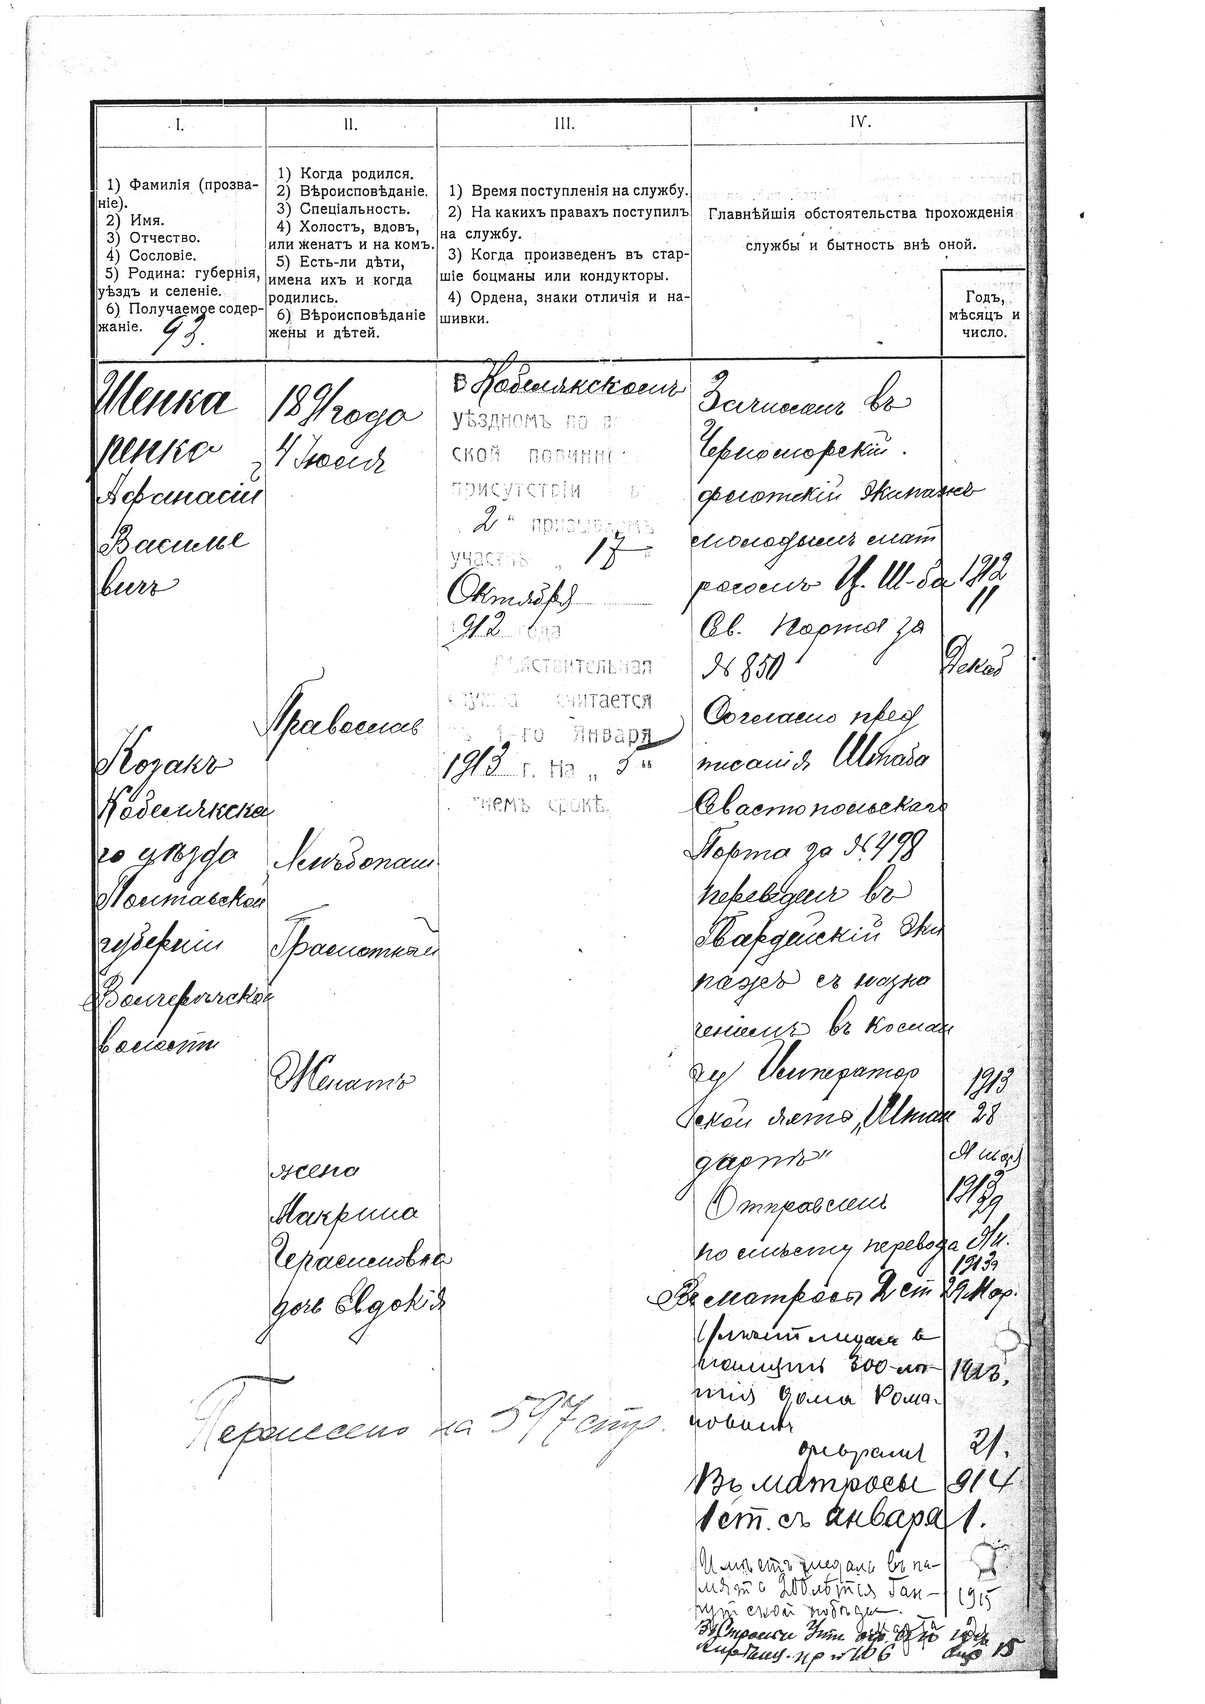 I.
1) Фамилія (прозва-
ніе).
2) Имя.
3) Отчество.
4) Сословіе.
5) Родина: губернія,
уѣздъ и селеніе.
6) Получаемое содер-
жаніе.
93.
Шенка
ренко
Афанасій
Василье
вичъ
Козакъ
Кобелякска
го уѣзда
Полтавской
губерніи
волости
II.
1) Когда родился.
2) Вѣроисповѣданіе.
3) Спеціальность.
4) Холостъ, вдовъ,
или женатъ и на комъ.
5) Есть-ли дѣти,
имена ихъ и когда
родились.
6) Вѣроисповѣданіе
жены и дѣтей.
1891 года
4 Іюля
Православ
Хлѣбопаш
Грамотный
Женатъ
жена
Макрина
Герасимовна
дочь Евдокія
III.
1) Время поступленія на службу.
2) На какихъ правахъ поступилъ
на службу.
3) Когда произведенъ въ стар-
шіе боцманы или кондукторы.
4) Ордена, знаки отличія и на-
шивки.
В Кобелякскомъ
уѣздномъ по в
ской повинн
присутствіи в
2" призывномъ
участкѣ „ 17 "
Октября
912 года
Дѣйствительная
служба считается
съ 1-го Января
1913 г. На „ 5 "
лѣтнемъ срокѣ.
IV.
Главнѣйшія обстоятельства прохожденія
службы и бытность внѣ оной.
Годъ,
мѣсяцъ и
число.
Зачисленъ въ
Черноморскій
флотскій экипажъ
молодымъ мат
росомъ Ц. Ш-ба 1912
11
Св. Порта за
№ 850 Декаб
Согласно пред
писанія Штаба
Севастопольскаго
Порта за № 498
переведенъ въ
Гвардейскій Эки
пажъ съ назна
ченіемъ въ коман
ду Император 1913
ской яхты „Штан 28
дартъ" Января
Отправленъ 1913 29
по мѣсту перевода Ян.
1913
Въ матросы 2 ст 29 Мар.
Имѣетъ медаль въ
память 300-лѣ- 1913.
тія Дома Рома-
новыхъ
февраля 21.
Въ матросы 914
1 ст. съ января 1.
Имѣетъ медаль въ па-
мять 200лѣтія Ган- 1915
гутской побѣды.
Перенесено на 597 стр.